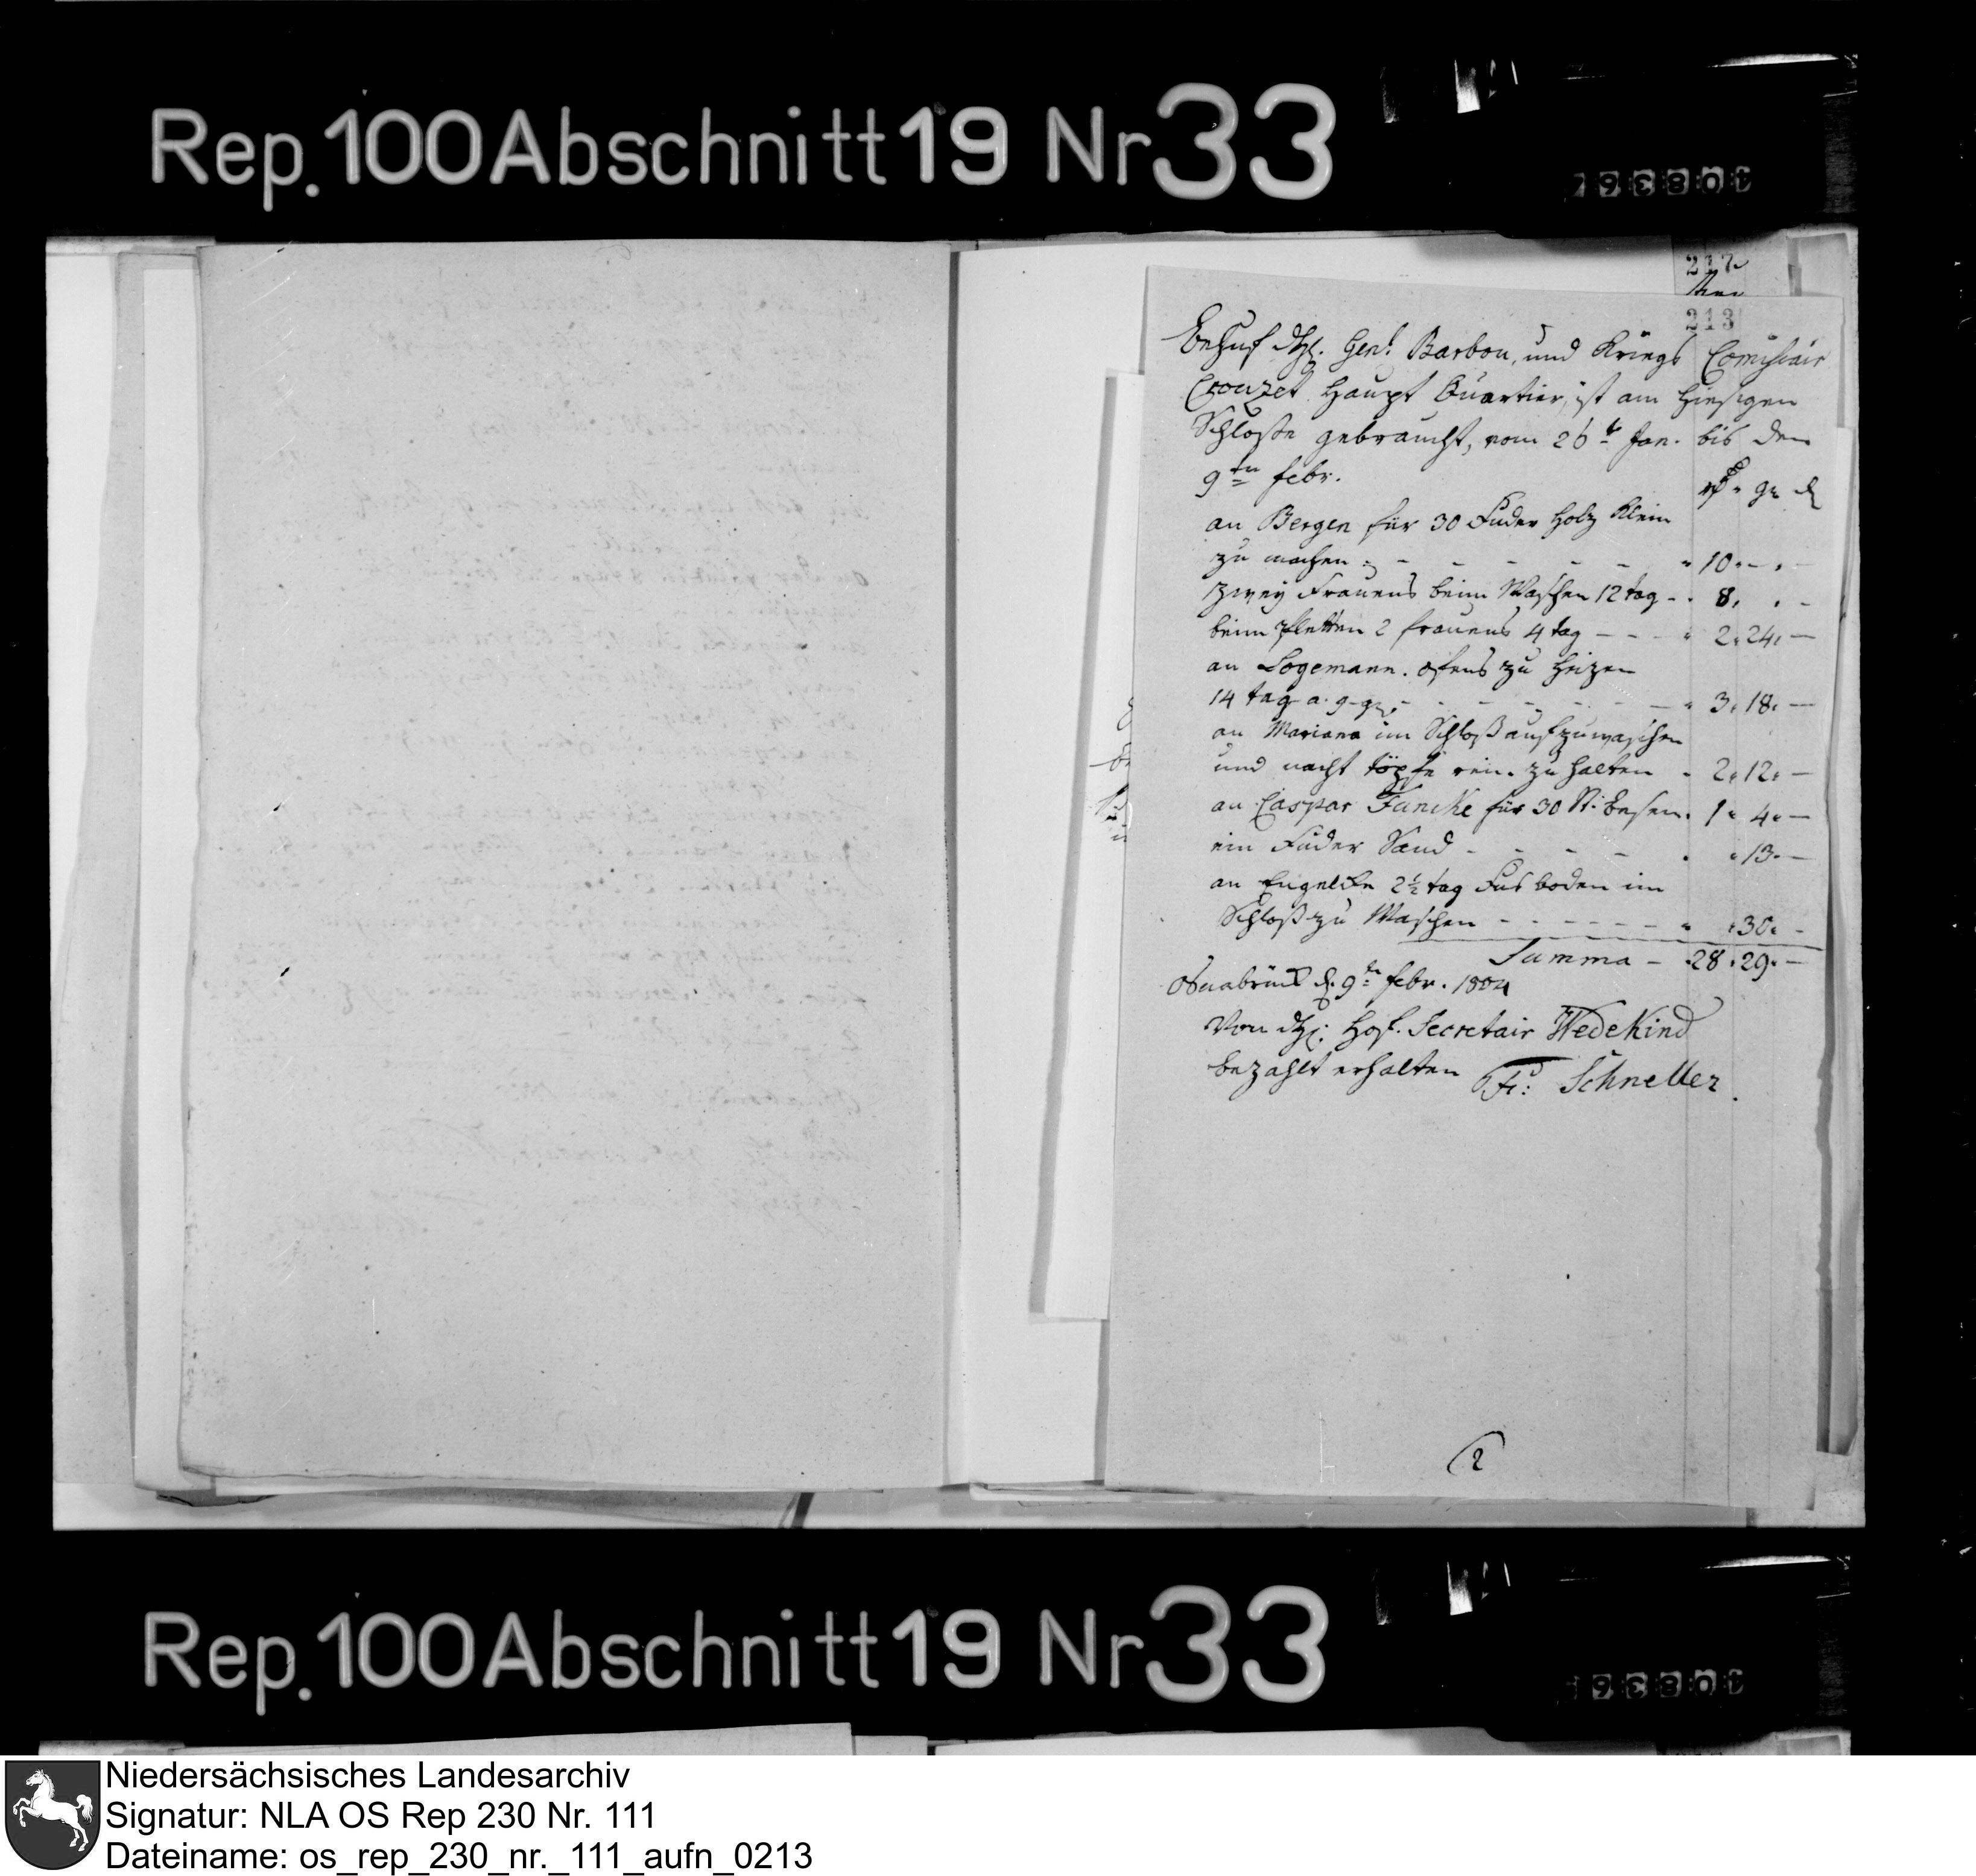 Rep.100 Abschnitt 19 Nr 33
217
213
Behuf dhl. Genl. Barbou, und Kriegs Comissair
Crouzet Haupt Quartier, ist am hiesigen
Schloße gebraucht, vom 26t Jan. bis den
9ten febr.
rß gr d
an Bergen für 30 Fuder Holz klein
zu machen - - - - - 10 - -
Zwey Frauens beim Waschen 12 tag - 8. . -
beim pletten 2 frauens 4 tag - - - 2. 24. -
an Logemann. ofens zu heizen
14 tag a. 9 gr. - - - - - 3. 18. -
an Mariana im Schloß aufzuwaschen
und nacht töpfe rein. zu halten - 2. 12. -
an Caspar Funcke für 30 St. besen. 1 " 4 " -
ein Fuder Sand - - - - . " 13. -
an Engelke 2½ tag Fus boden im
Schloß zu Waschen - - - - - " 30. -
Summa - 28. 29. -
Osnabrück d. 9ten febr. 1804
Von dhl: Hof. Secretair Wedekind
bezahlt erhalten Fr: Schneller.
2
Rep.100 Abschnitt 19 Nr 33
Niedersächsisches Landesarchiv
Signatur: NLA OS Rep 230 Nr. 111
Dateiname: os_rep_230_nr._111_aufn_0213